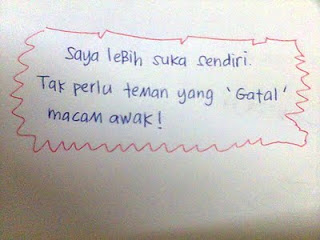 Saya lebih suka sendiri.
Tak perlu teman yang 'Gatal'
macam awak!